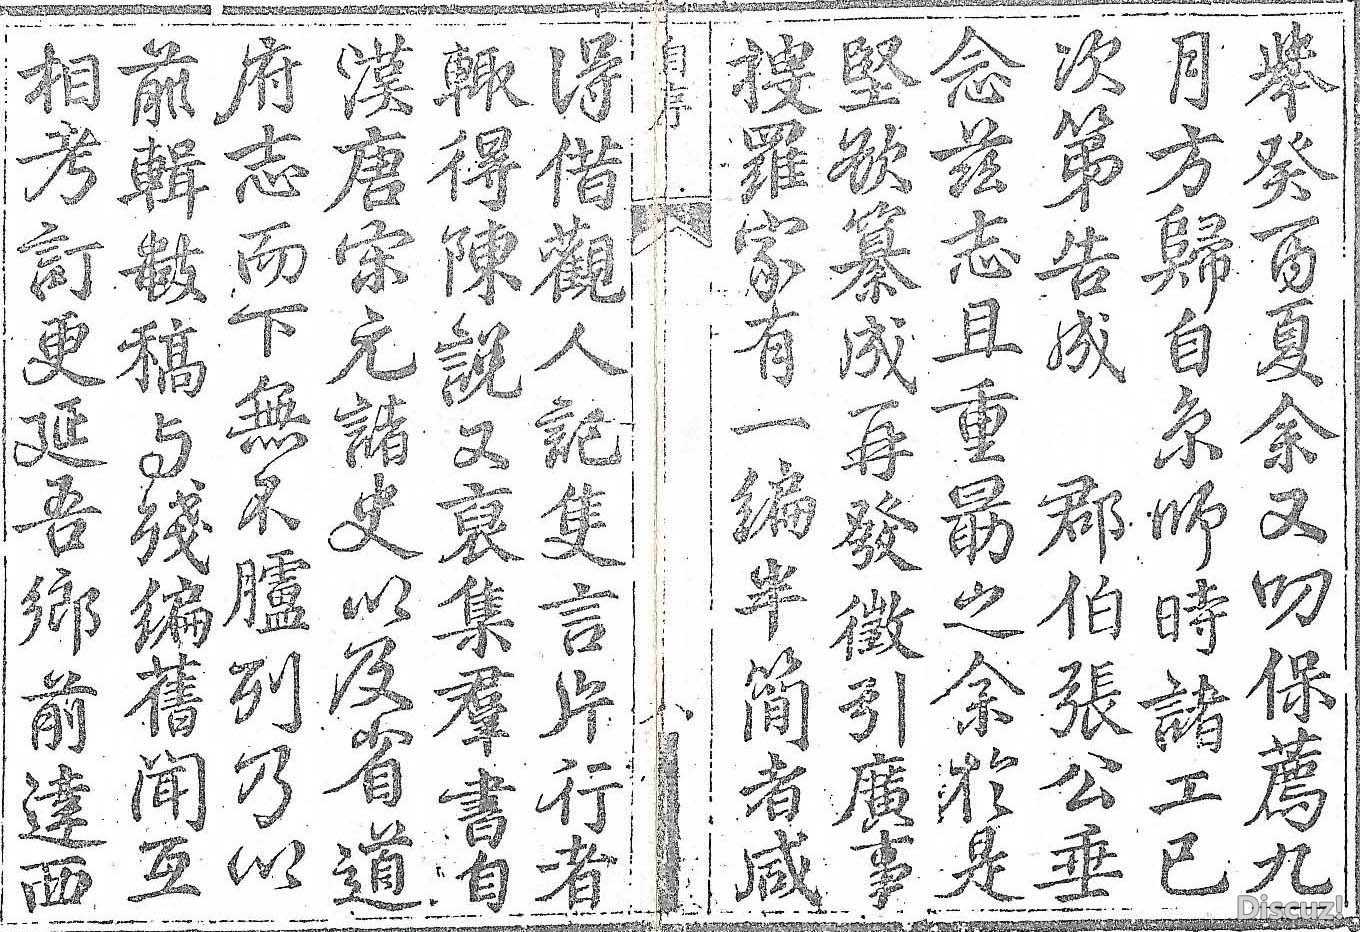 舉癸酉夏余又叨保薦九
月方歸自京師時諸工已
次第告成 郡伯張公垂
念茲志且重勗之余於是
堅欲纂成再發徵引廣事
搜羅家有一編半簡者咸
自序
八
得借觀人記隻言片行者
輙得陳說又裒集羣書自
漢唐宋元諸史以及省道
府志而下無不臚列乃以
前輯數稿与殘編舊聞互
相考訂更延吾鄉前達西
Discuz!